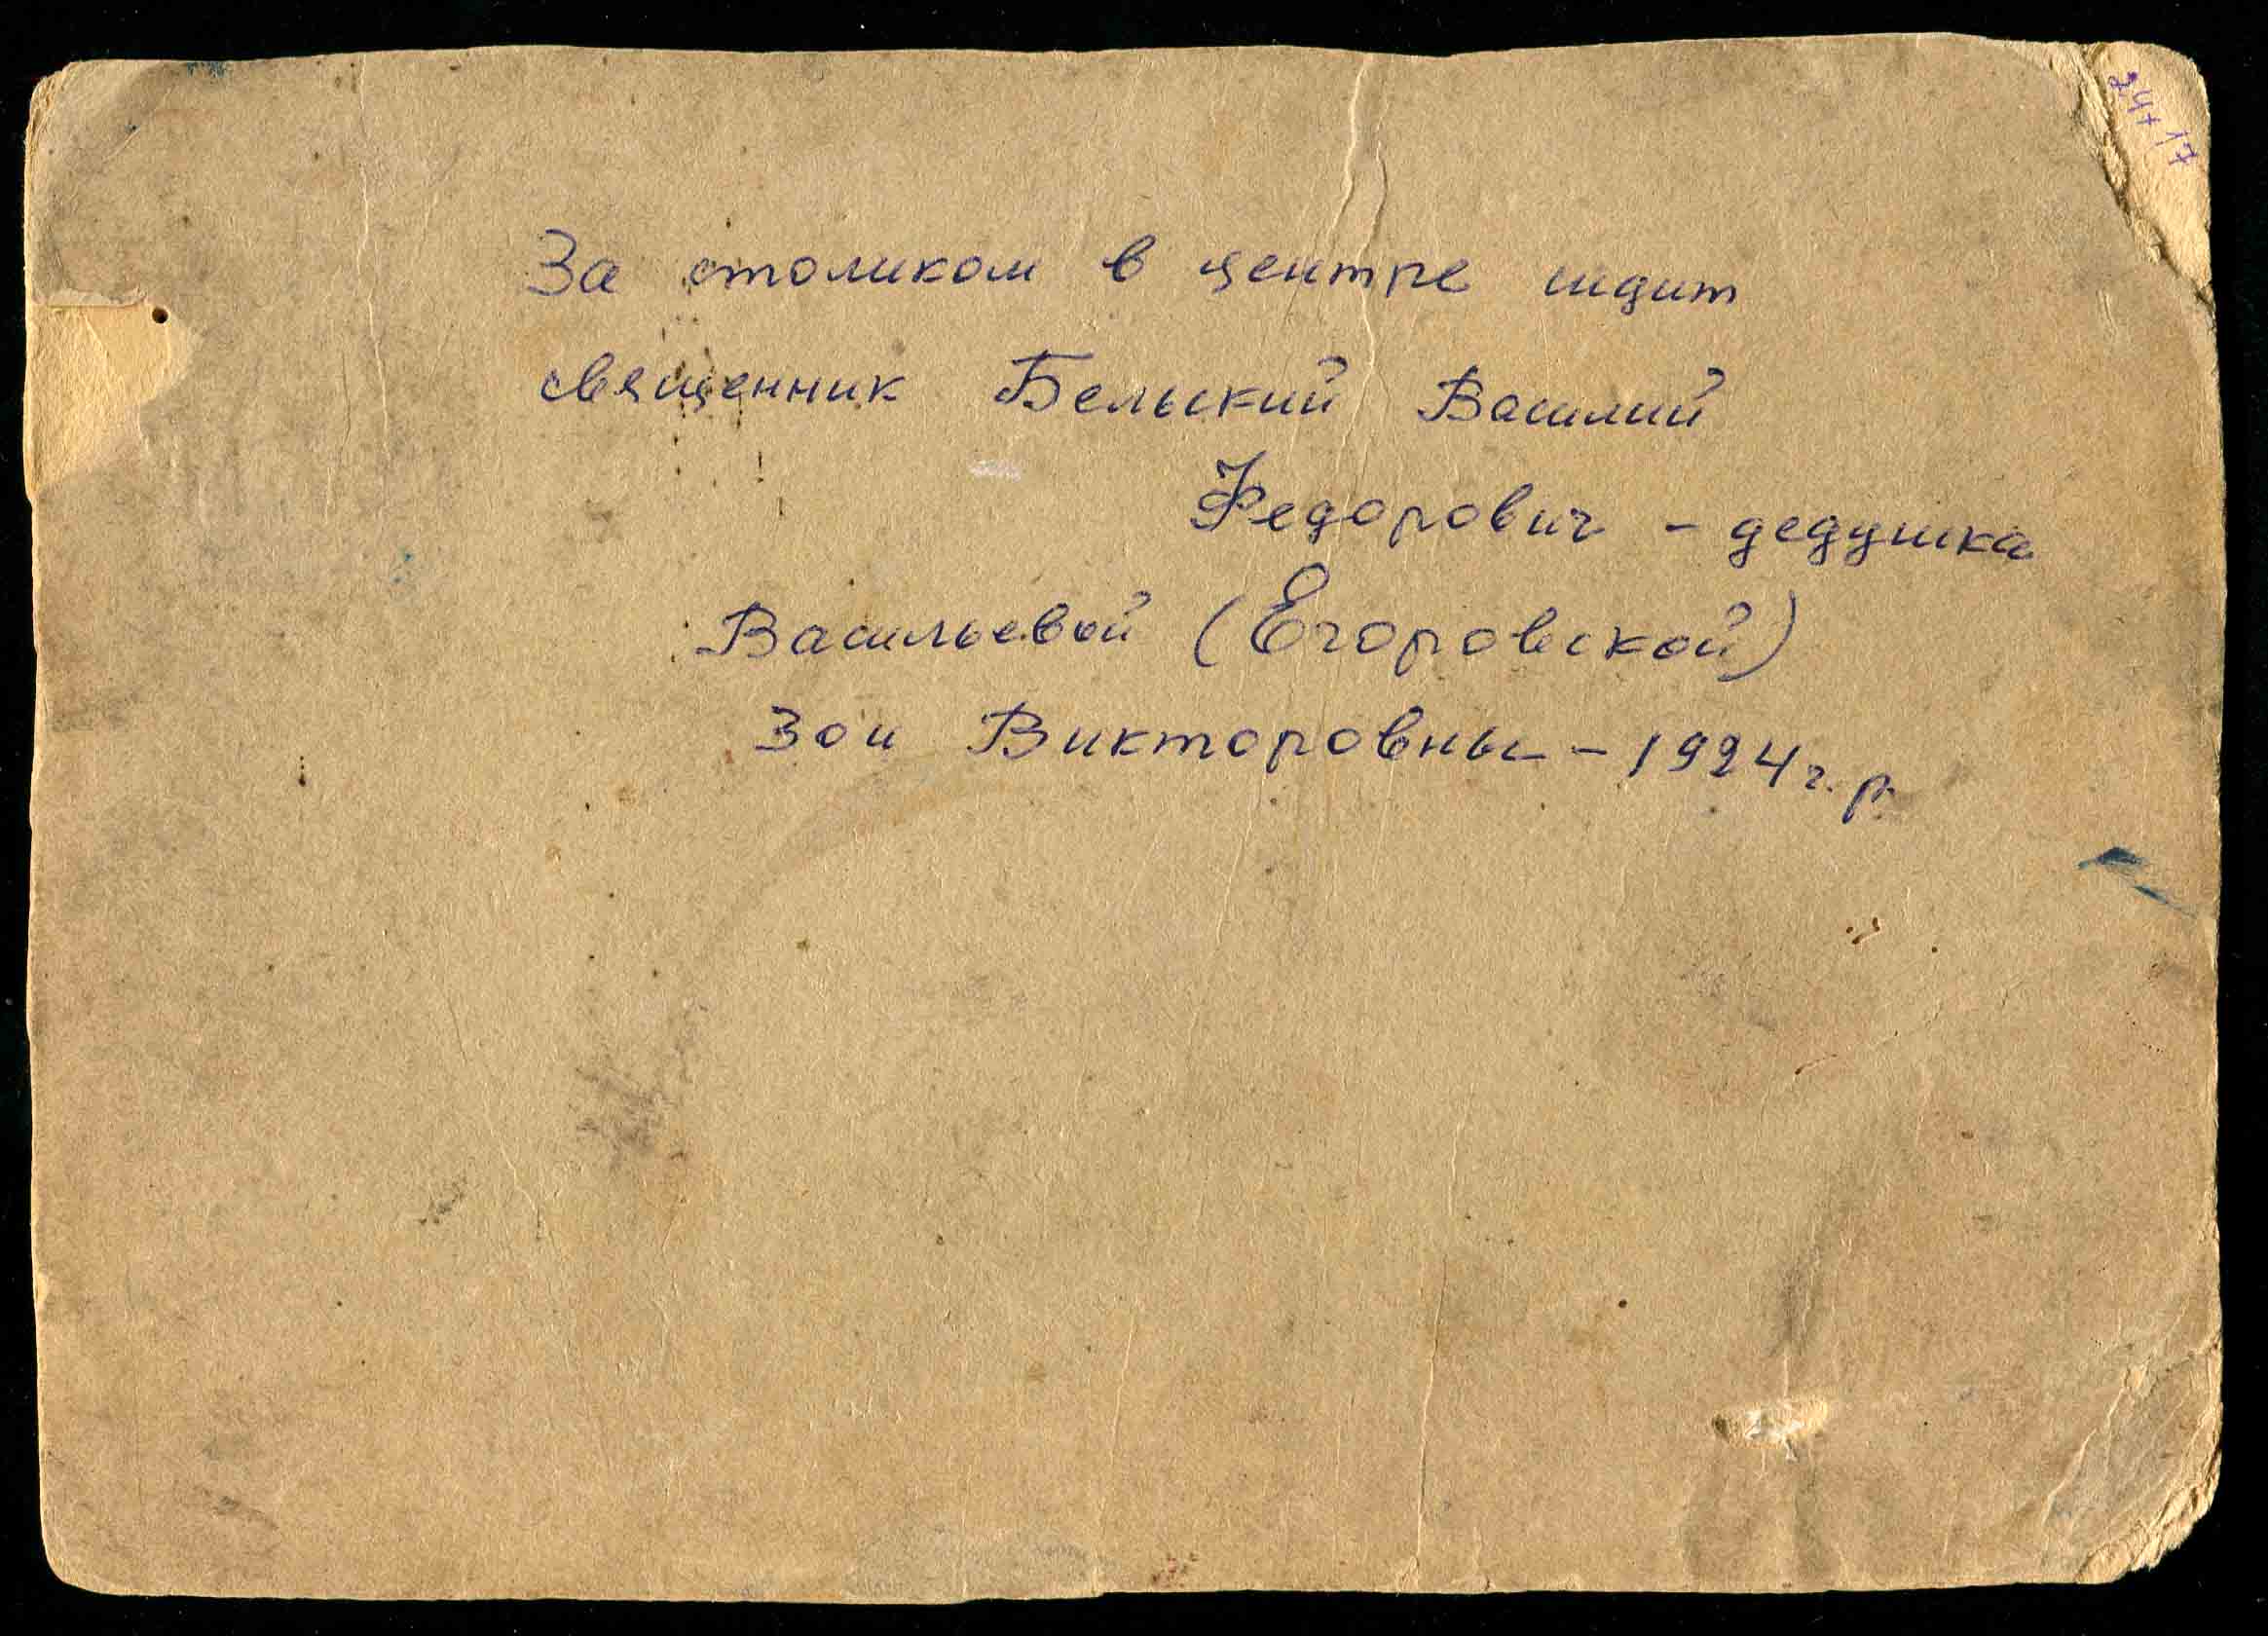 24+17
За столиком в центре сидит
священник Бельский Василий
Федорович - дедушка
Васильевой (Егоровской)
Зои Викторовны - 1924 г. р.